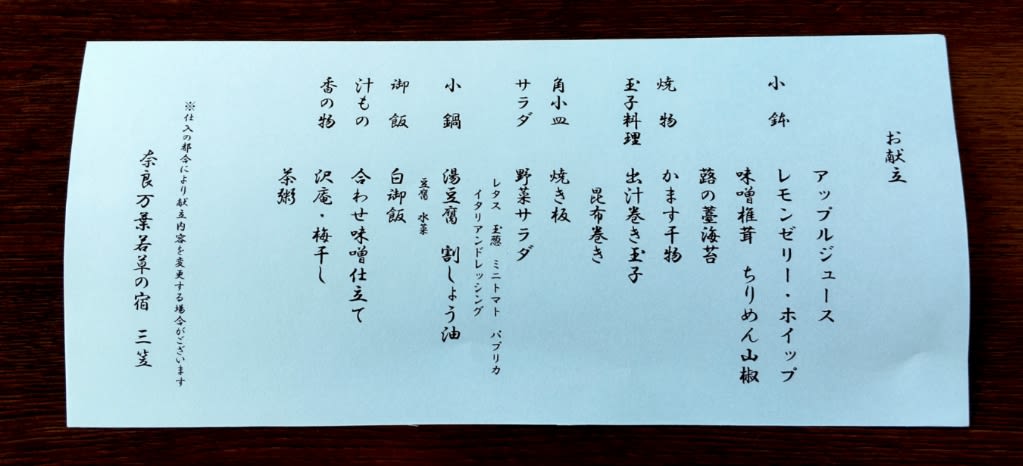 お献立
アップルジュース
小鉢 レモンゼリー・ホイップ
味噌椎茸 ちりめん山椒
蕗の薹海苔
焼物 かます干物
玉子料理 出汁巻き玉子
昆布巻き
角小皿 焼き板
サラダ 野菜サラダ
レタス 玉葱 ミニトマト パプリカ
イタリアンドレッシング
小鍋 湯豆腐 割しょう油
豆腐 水菜
御飯 白御飯
汁もの 合わせ味噌仕立て
香の物 沢庵・梅干し
茶粥
※仕入の都合により献立内容を変更する場合がございます
奈良 万葉若草の宿 三笠